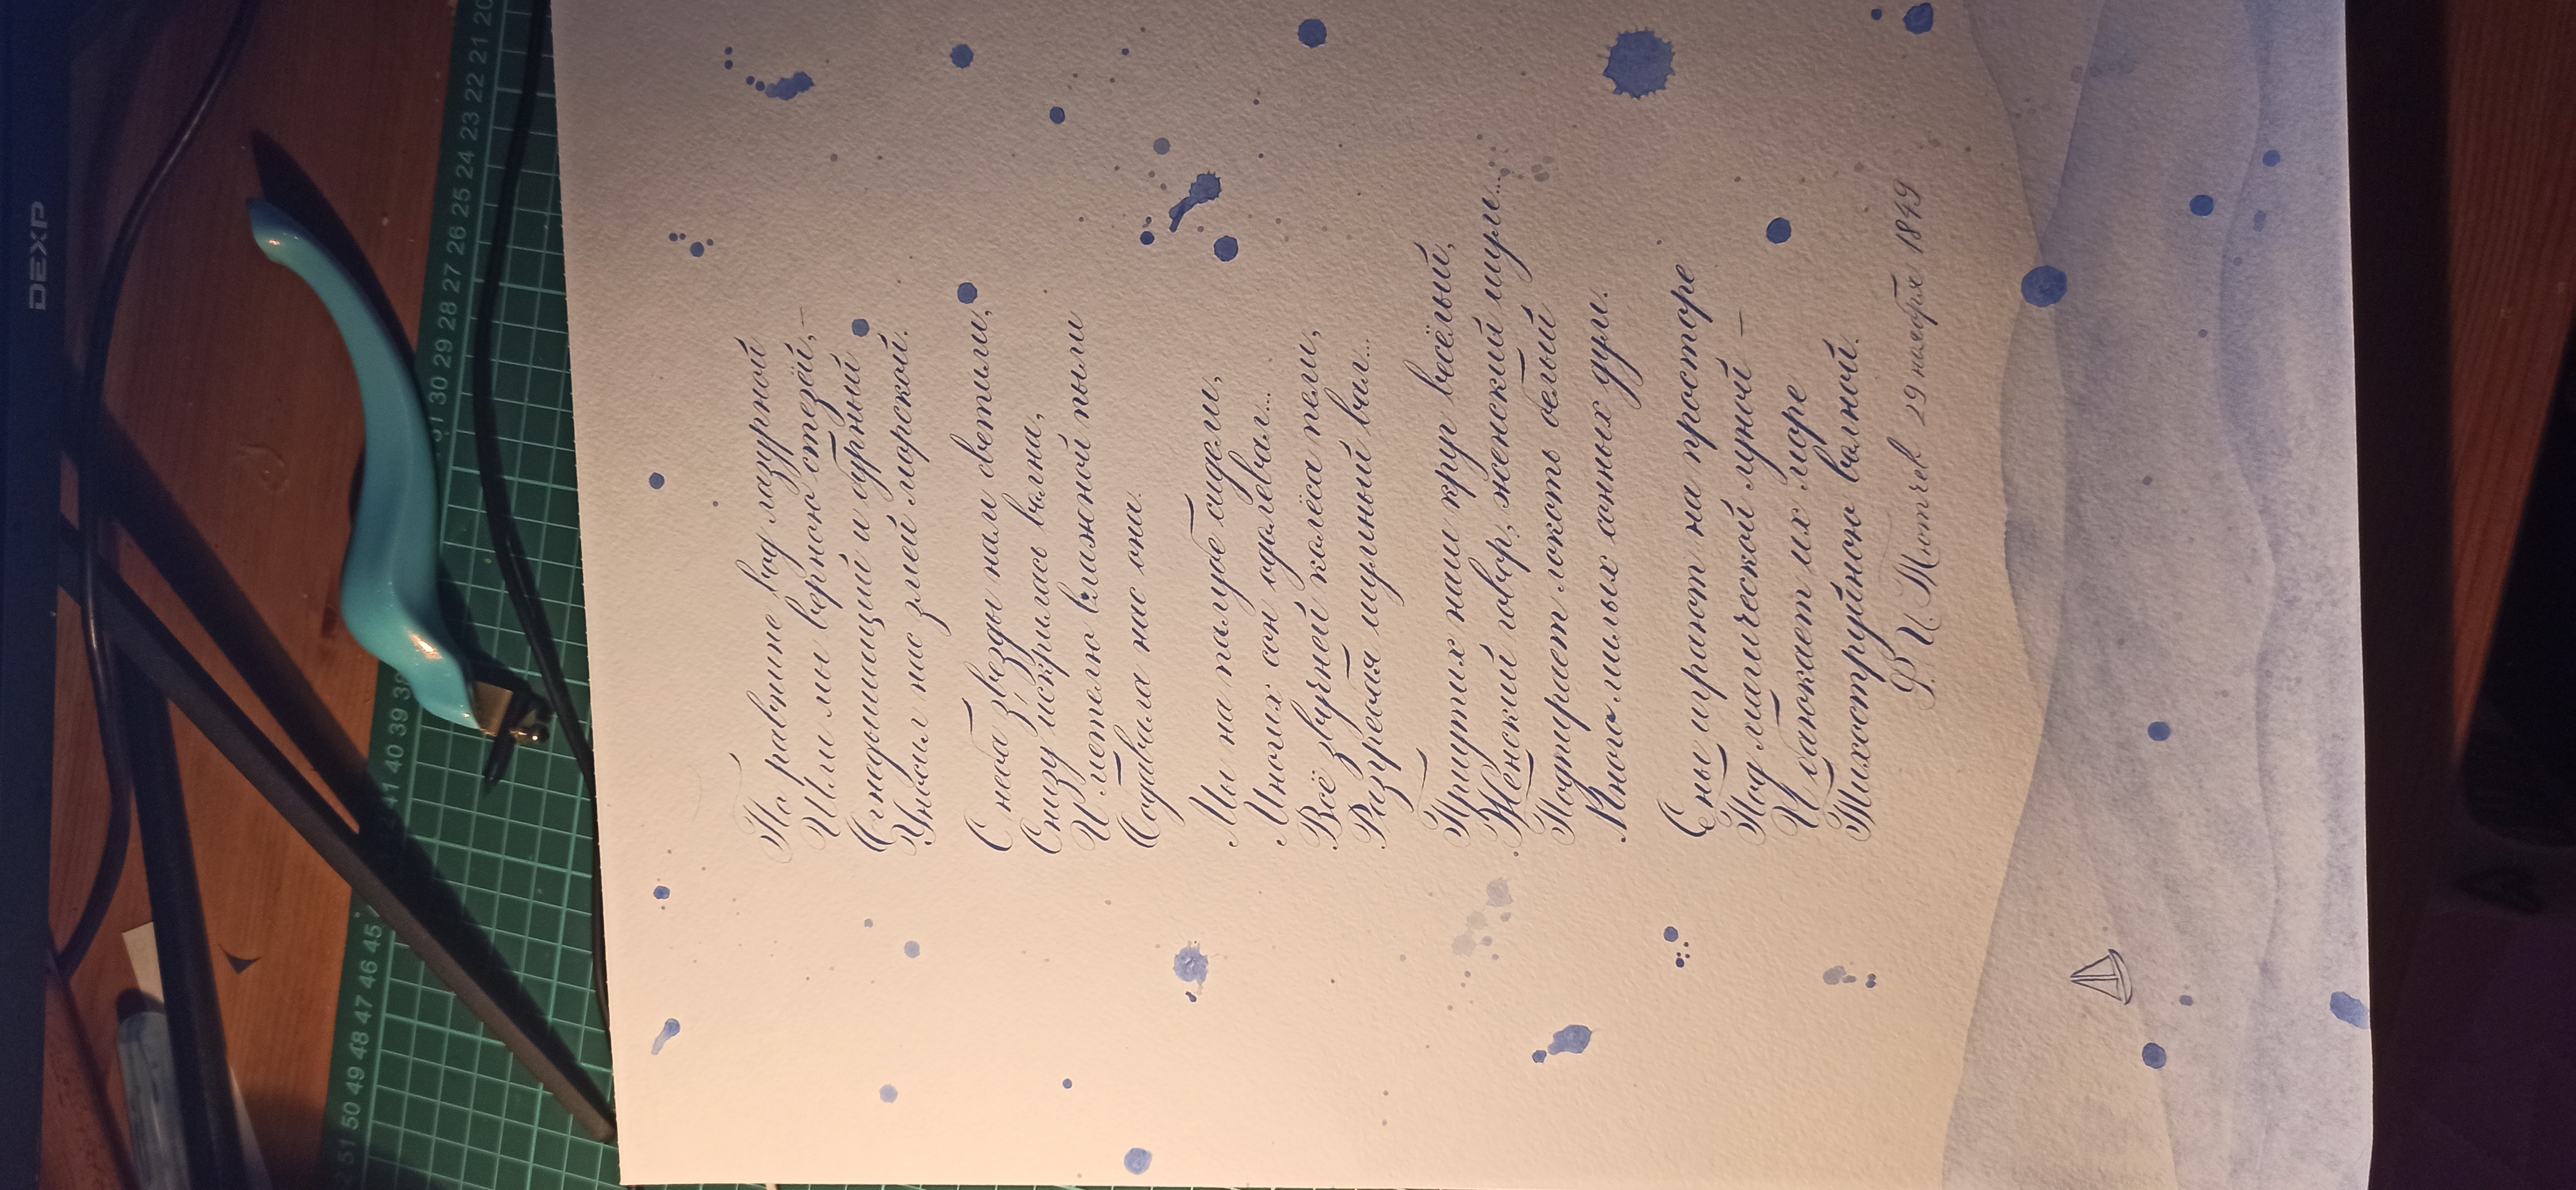 По равнине вод лазурной
Шли мы верною стезёй, –
Огнедышащий и бурный
Уносил нас змей морской.
С неба звёзды нам светили,
Снизу искрилась волна,
И метелью влажной пыли
Обдавала нас она.
Мы на палубе сидели,
Многих сон одолевал...
Всё звучней колёса пели,
Разгребая шумный вал...
Приутих наш круг весёлый,
Женский говор, женский шум...
Подпирает локоть белый
Много милых сонных дум.
Сны играют на просторе
Под магической луной –
И баюкает их море
Тихоструйною волной.
Ф. И. Тютчев 29 ноября 1849
DEXP
51 50 49 48 47 46 45
41 40 39 38
31 30 29 28 27 26 25 24 23 22 21 20